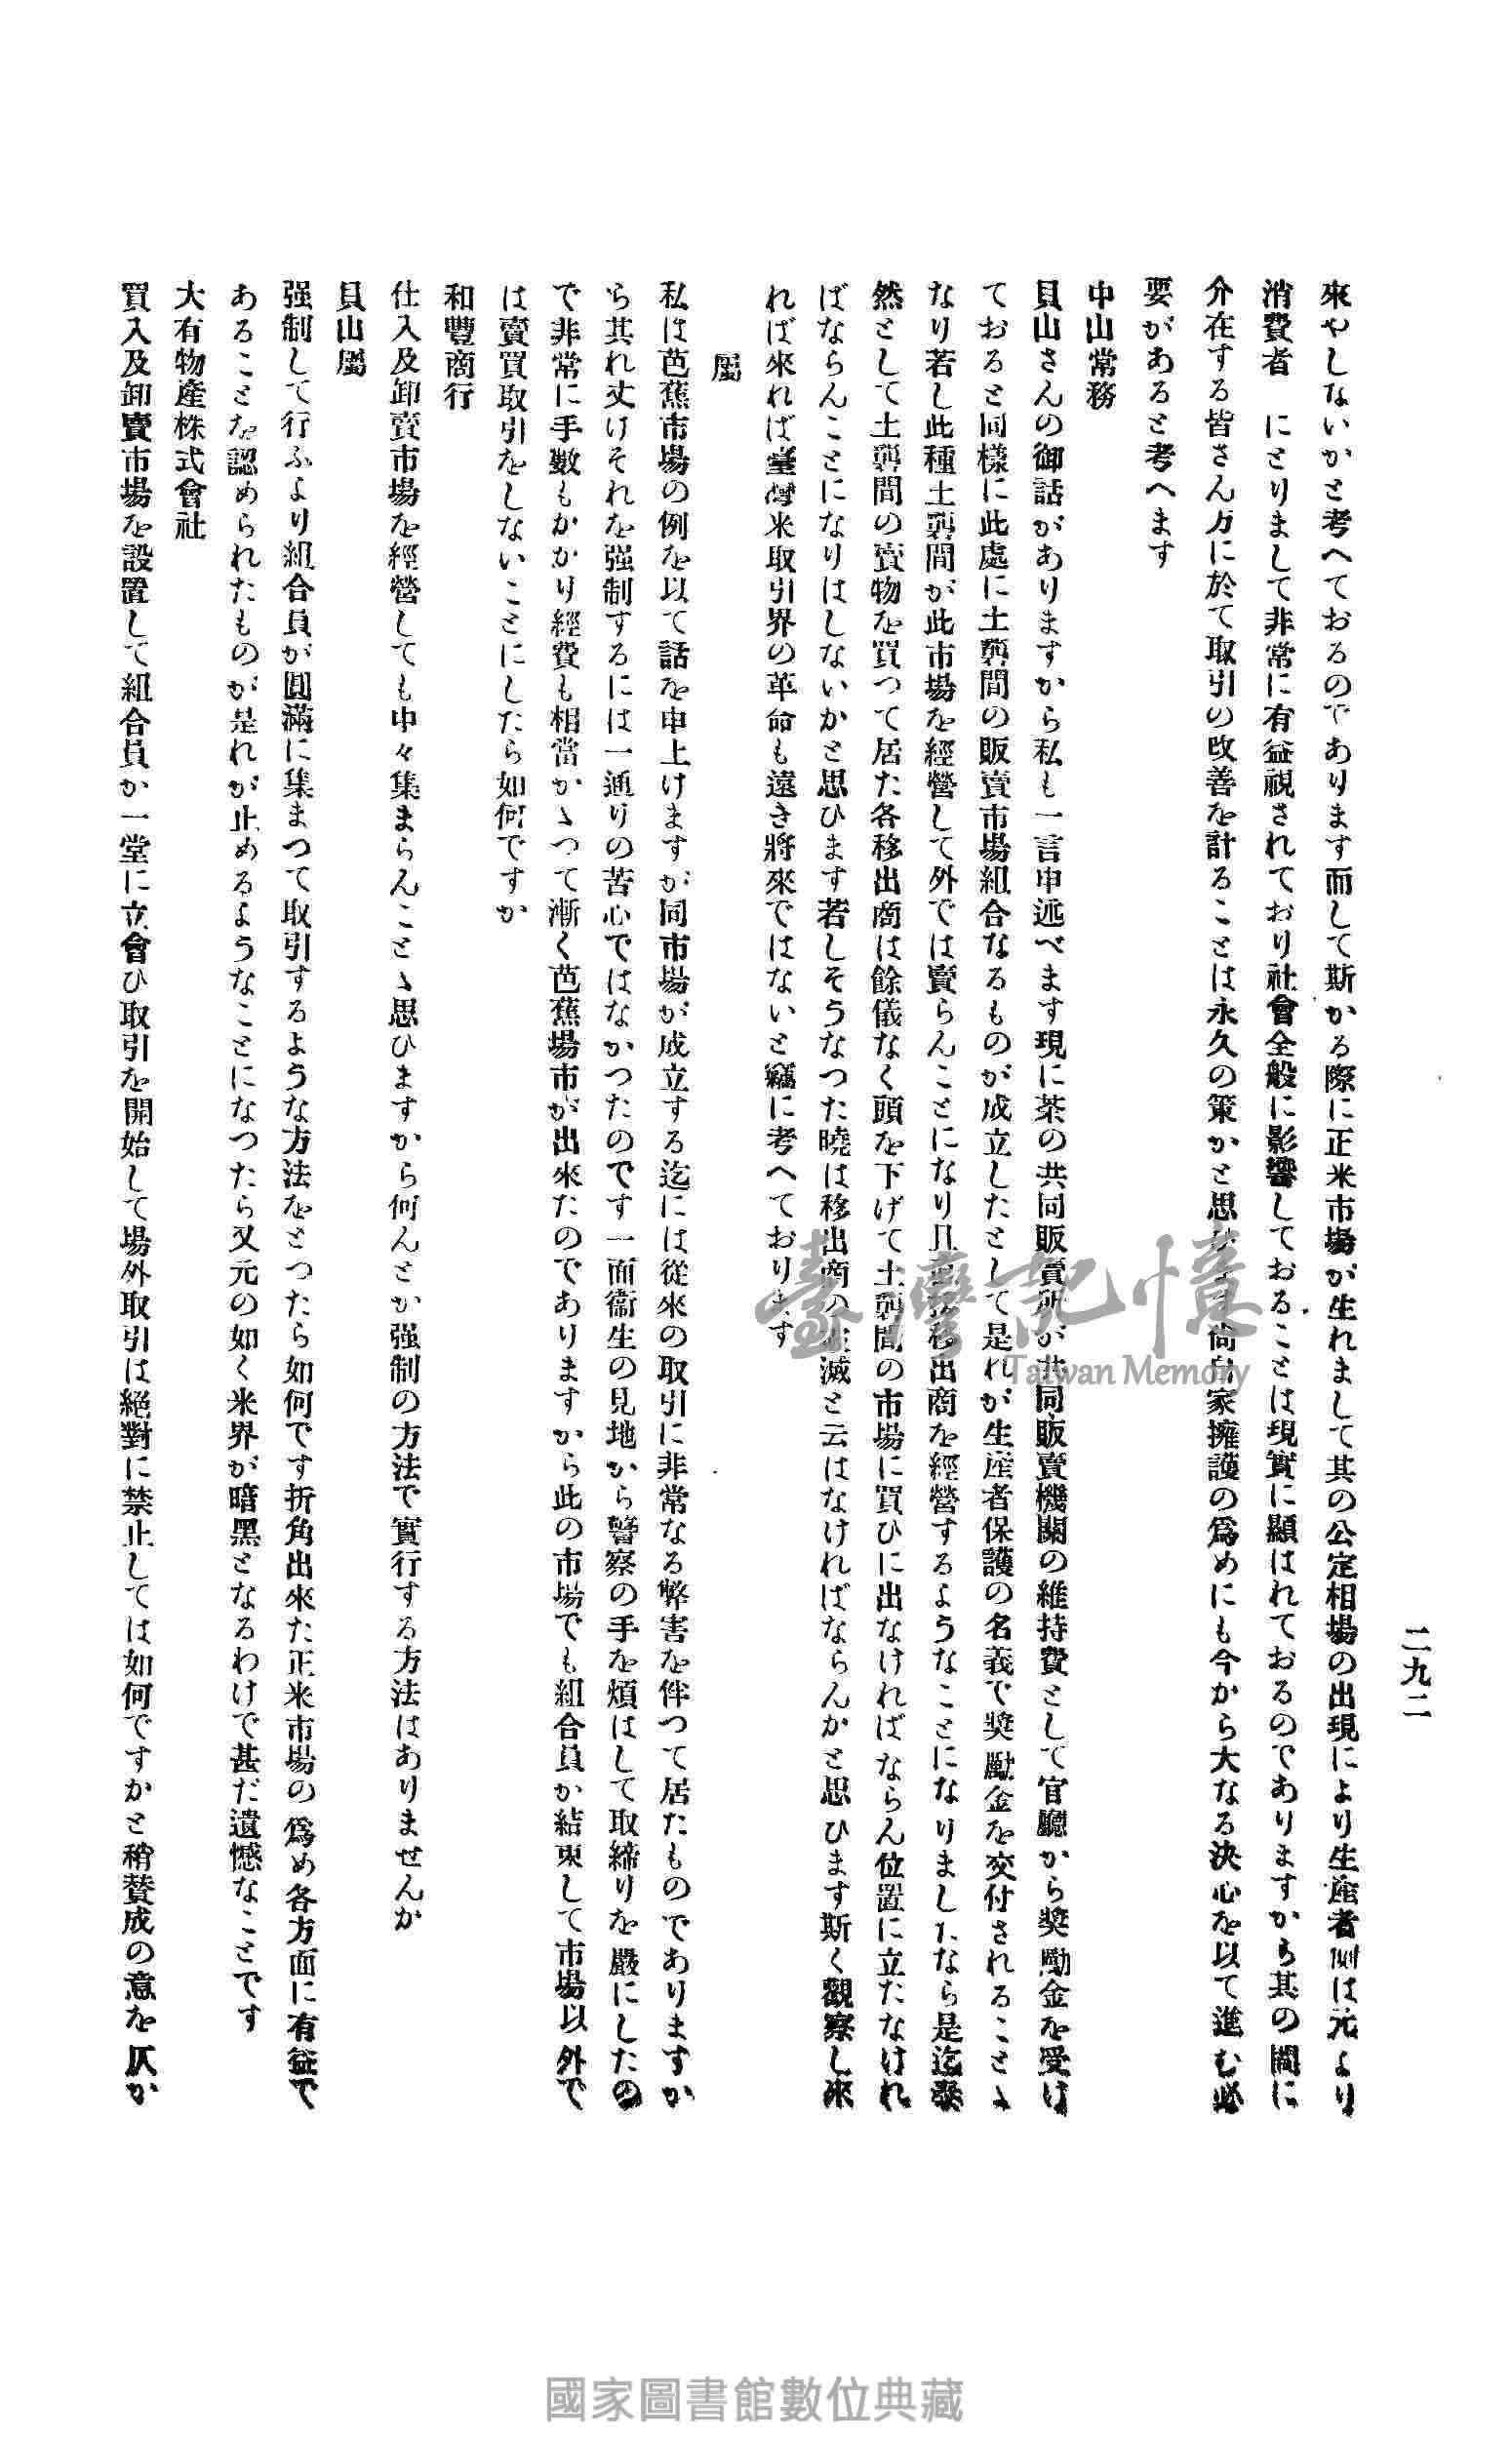 二九二
來やしないかと考へておるのであります而して斯かる際に正米市場が生れまして其の公定相場の出現により生産者側は元より
消費者　にとりまして非常に有益視されており社會全般に影響しておることは現實に顯はれておるのでありますから其の間に
介在する皆さん方に於て取引の改善を計ることは永久の策かと思 尚自家擁護の爲めにも今から大なる決心を以て進む必
要があると考へます
中山常務
貝山さんの御話がありますから私も一言申述べます現に茶の共同販賣所が共同販賣機關の維持費として官廳から奬勵金を受け
ておると同樣に此處に土礱間の販賣市場組合なるものが成立したとして是れが生産者保護の名義で奬勵金を交付されることゝ
なり若し此種土礱間が此市場を經營して外では賣らんことになり且 移出商を經營するようなことになりましたなら是迄泰
然として土礱間の賣物を買つて居た各移出商は餘儀なく頭を下げて土礱間の市場に買ひに出なければならん位置に立たなけれ
ばならんことになりはしないかと思ひます若しそうなつた曉は移出商の 滅と云はなければならんかと思ひます斯く觀察し來
れば來れば臺灣米取引界の革命も遠き將來ではないと竊に考へております
屬
私は芭蕉市場の例を以て話を申上けますが同市場が成立する迄には從來の取引に非常なる弊害を伴つて居たものでありますか
ら其れ丈けそれを强制するには一通りの苦心ではなかつたのです一面衞生の見地から警察の手を煩はして取締りを嚴にしたの
で非常に手數もかかり經費も相當かゝつて漸く芭蕉場市が出來たのでありますから此の市場でも組合員か結束して市場以外で
は賣買取引をしないことにしたら如何ですか
和豐商行
仕入及卸賣市場を經營しても中々集まらんことゝ思ひますから何んとか强制の方法で實行する方法はありませんか
貝山屬
强制して行ふより組合員が圓滿に集まつて取引するような方法をとつたら如何です折角出來た正米市場の爲め各方面に有益で
あることを認められたものが是れが止めるようなことになつたら又元の如く米界が暗黑となるわけで甚だ遺憾なことです
大有物產株式會社
買入及卸賣市場を設置して組合員か一堂に立會ひ取引を開始して場外取引は絕對に禁止しては如何ですかと稍賛成の意を仄か
臺灣記憶
Taiwan Memory
國家圖書館數位典藏